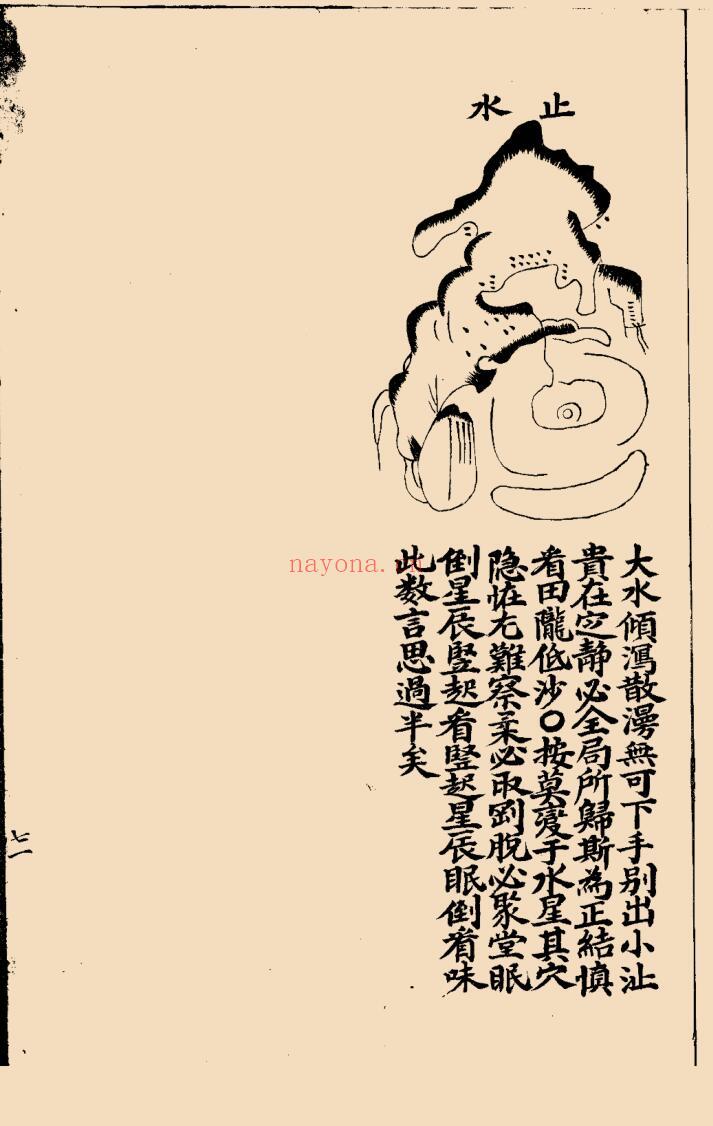 止水
大水傾瀉散漫無可下手别出小沚
貴在㝎静必全局所歸斯為正結慎
看田隴低沙〇按莫變于水星其穴
隐恠尤難察柔必取剛脫必聚堂眠
倒星辰竪起看竪起星辰眠倒看味
此数言思過半矣
七一
nayona.cn